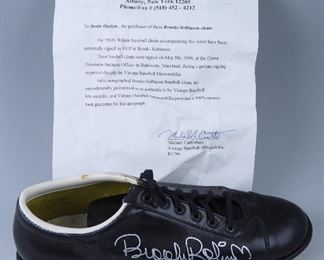 Albany, New York 12205
Phone/Fax # (518) 452 - 4212
To Justin Harlem, the purchaser of these Brooks Robinson cleats
The 1960's Wilson baseball cleats accompanying this letter have been
personally signed by HOF'er Brooks Robinson.
These baseball cleats were signed on May 8th, 1996, at the Crown
Petroleum business Offices in Baltimore, Maryland, during a private signing
organized directly by Vintage Baseball Memorabilia.
These autographed Brooks Robinson baseball cleats are
unconditionally guaranteed as to authenticity by Vintage Baseball
Memorabilia and Vintage Baseball Memorabilia provides a 100% money
back guarantee for this autograph.
Vintage Baseball Memorabilia
Brooks Robinson